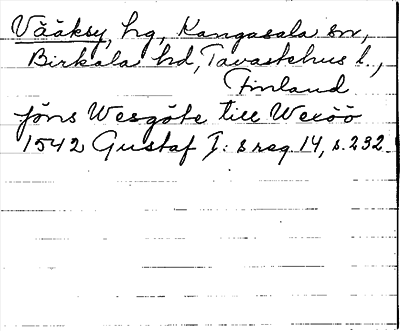 Vääksy, hg, Kangasala sn,
Birkala hd, Tavastehus l.,
Finland
Jöns Wesgöte till Wexöö
1542 Gustaf I: s reg. 14, s. 232.